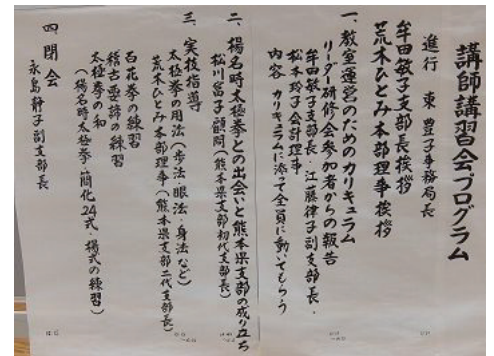 講師講習会プログラム
進行 東 豊子事務局長
牟田敏子支部長挨拶
荒木ひとみ本部理事挨拶
一、教室運営のためのカリキュラム
リーダー研修会参加者からの報告
牟田敏子支部長・江藤律子副支部長・
松本玲子会計理事
内容 カリキュラムに添って全員に動いてもらう
二、楊名時太極拳との出会いと熊本県支部の成り立ち
松川富子顧問(熊本県支部初代支部長)
三、実技指導
太極拳の用法(歩法・眼法・身法など)
荒木ひとみ本部理事(熊本県支部二代支部長)
百花拳の練習
稽古要諦の練習
太極拳の和
(楊名時太極拳・簡化24式・楊式の練習)
四、閉会
永島静子副支部長